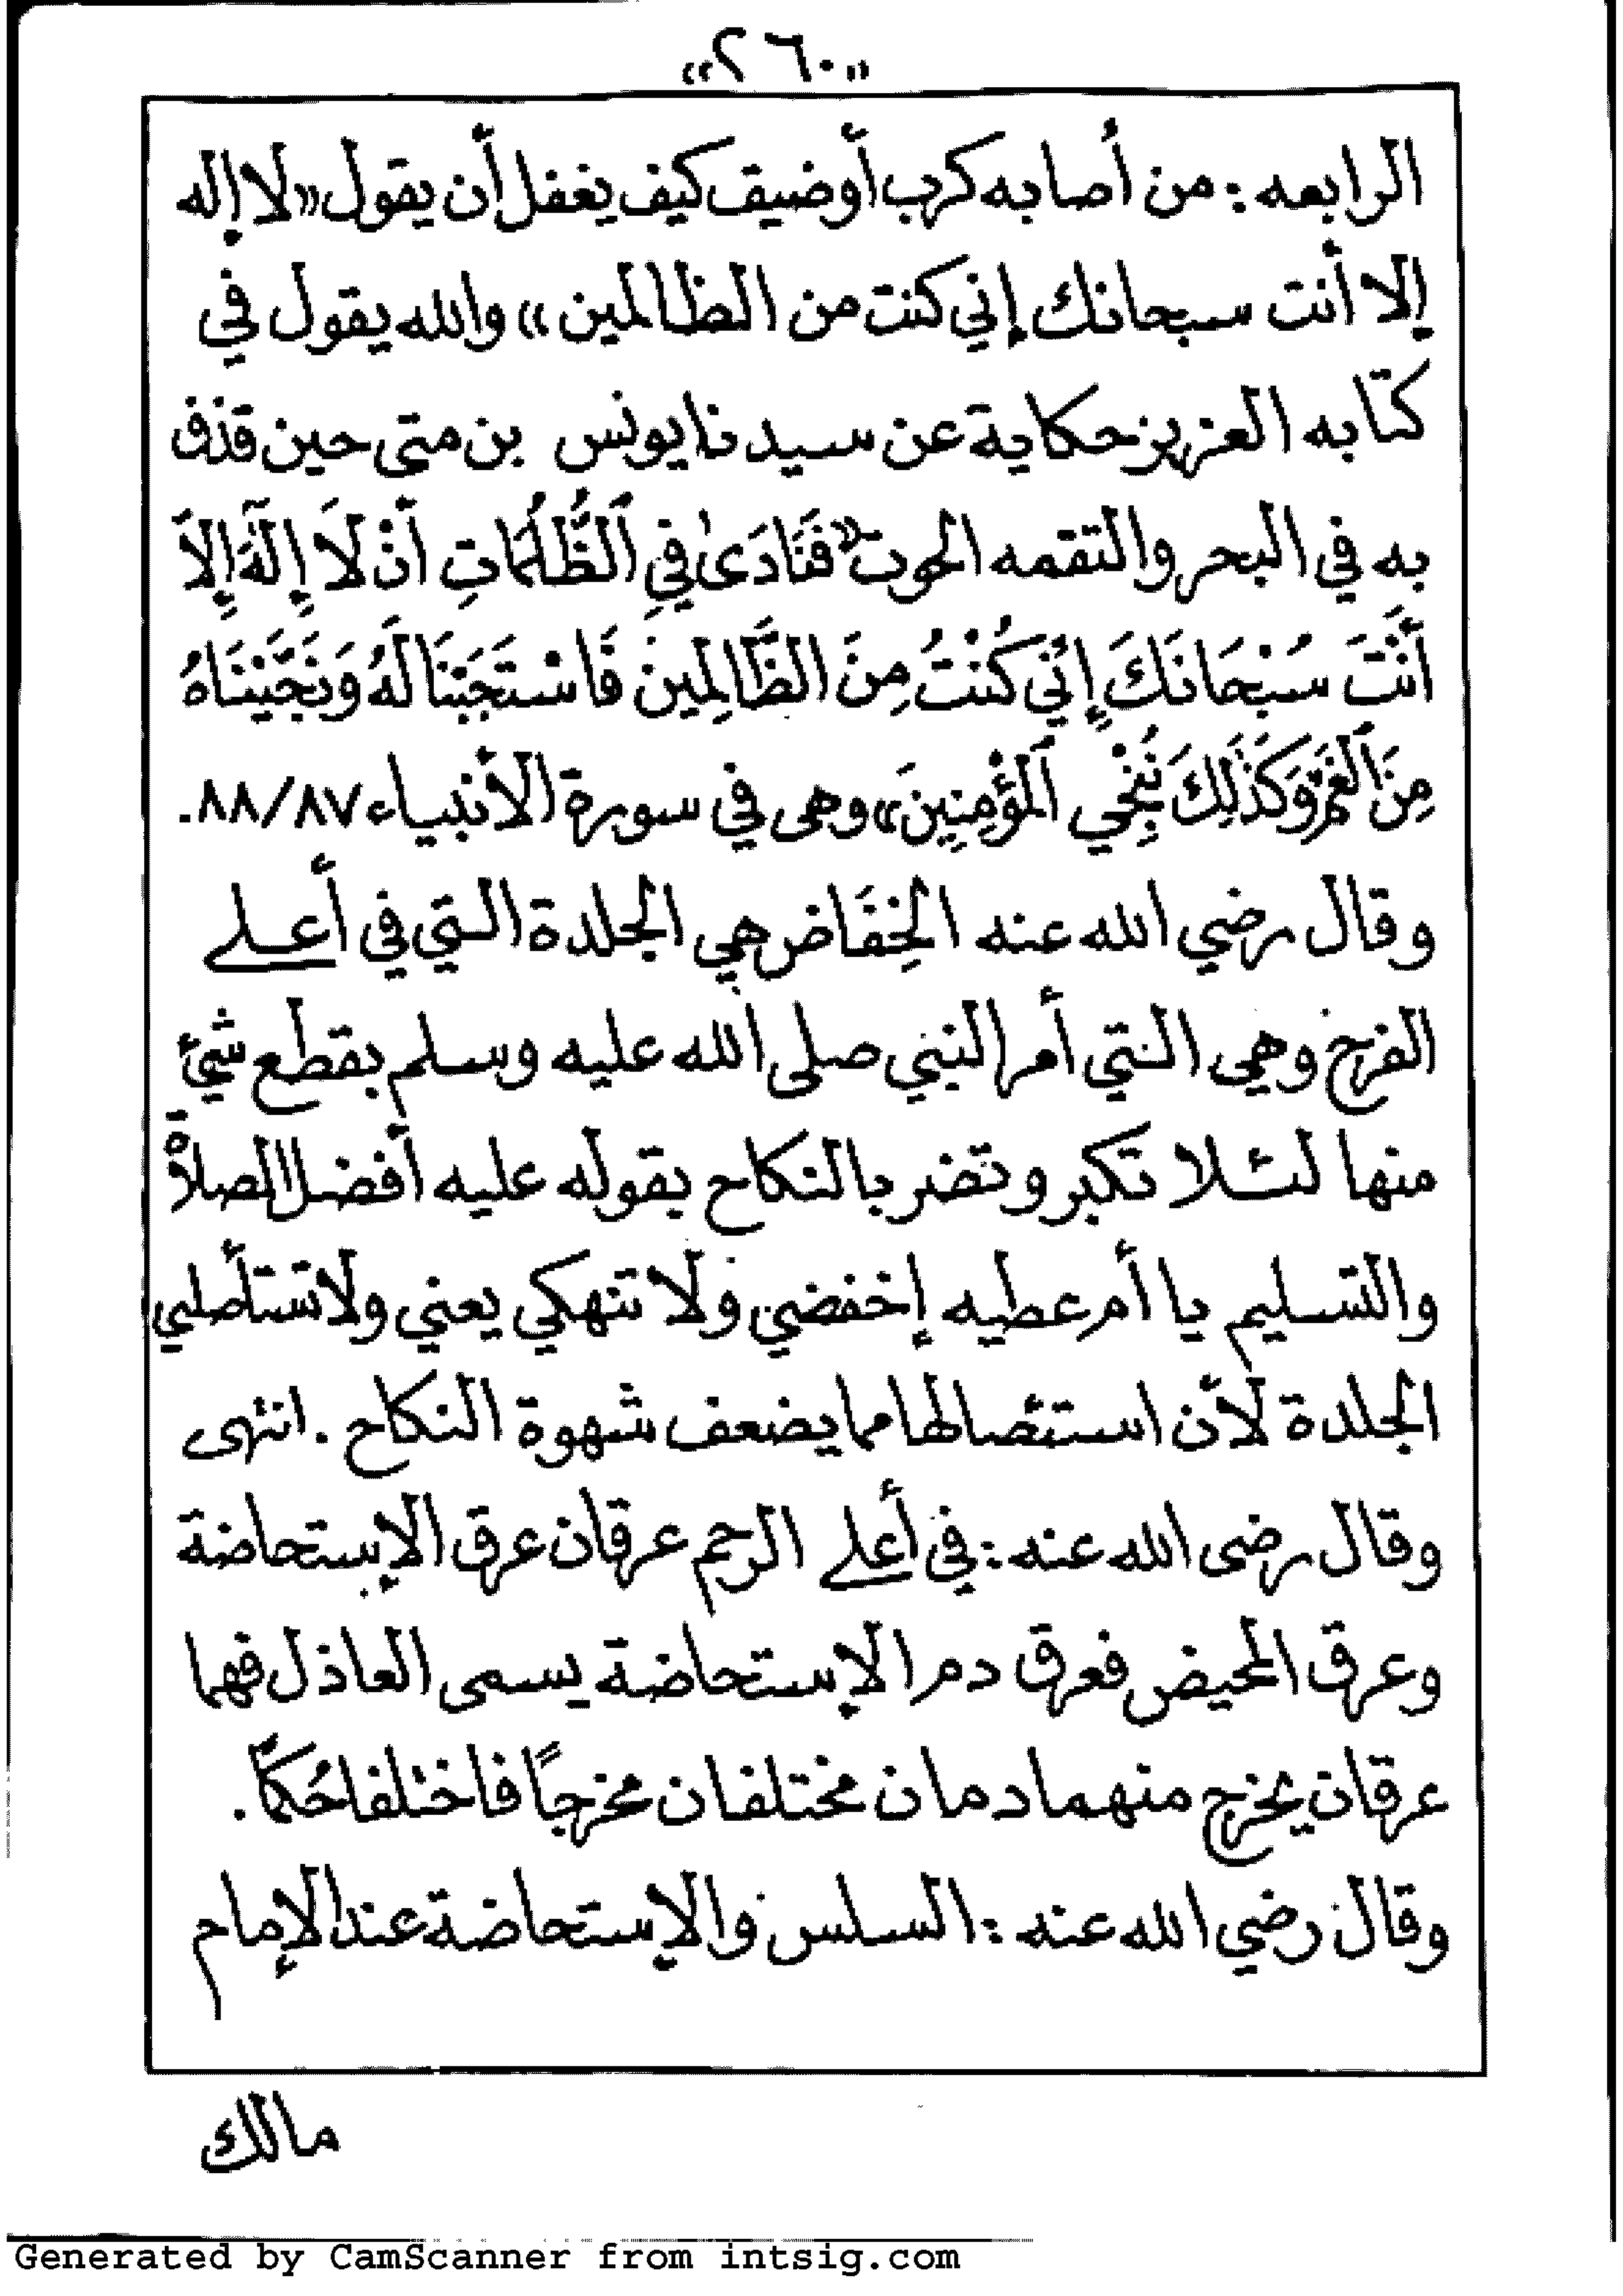 «٢٦٠»
الرابعه : من أصابه كرب أو ضيق كيف يغفل أن يقول «لا إله
إلا أنت سبحانك إني كنت من الظالمين» والله يقول في
كتابه العزيز حكاية عن سيدنا يونس بن متى حين قذف
به في البحر والتقمه الحوت «فَنَادَىٰ فِي ٱلظُّلُمَاتِ أَنْ لَا إِلَٰهَ إِلَّا
أَنْتَ سُبْحَانَكَ إِنِّي كُنْتُ مِنَ الظَّالِمِينَ فَاسْتَجَبْنَا لَهُ وَنَجَّيْنَاهُ
مِنَ ٱلْغَمِّ وَكَذَٰلِكَ نُنْجِي ٱلْمُؤْمِنِينَ» وهى في سورة الأنبياء ٨٨/٨٧.
وقال رضي الله عنه الخِفَاض هي الجلدة التي في أعلى
الفرج وهي التي أمر النبي صلى الله عليه وسلم بقطع شيءٍ
منها لئلا تكبر وتضر بالنكاح بقوله عليه أفضل الصلاة
والتسليم يا أم عطيه إخفضي ولا تنهكي يعني ولا تستأصلي
الجلدة لأن استئصالها مما يضعف شهوة النكاح . انتهى
وقال رضى الله عنه : في أعلى الرحم عرقان عرق الإستحاضة
وعرق المحيض فعرق دم الإستحاضة يسمى العاذل فهما
عرقان يخرج منهما دمان مختلفان مخرجًا فاختلفا حُكمًا .
وقال رضي الله عنه : السلس والإستحاضة عند الإمام
مالك
Generated by CamScanner from intsig.com